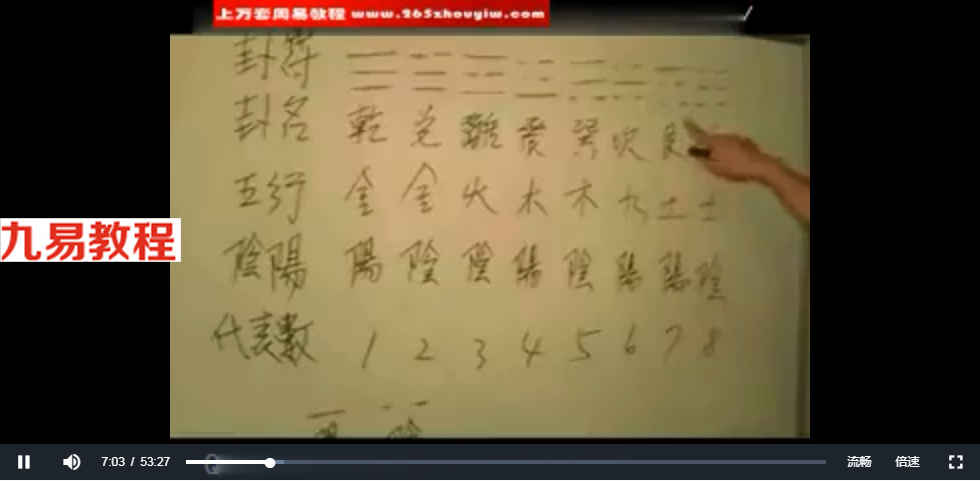 上万套周易教程 www.265zhouyiw.com
卦符
卦名 乾 兌 離 震 巽 坎 艮
五行 金 金 火 木 木 水 土 土
陰陽 陽 陰 陰 陽 陰 陽 陽 陰
代表數 1 2 3 4 5 6 7 8
九易教程
7:03 / 53:27 流畅 倍速